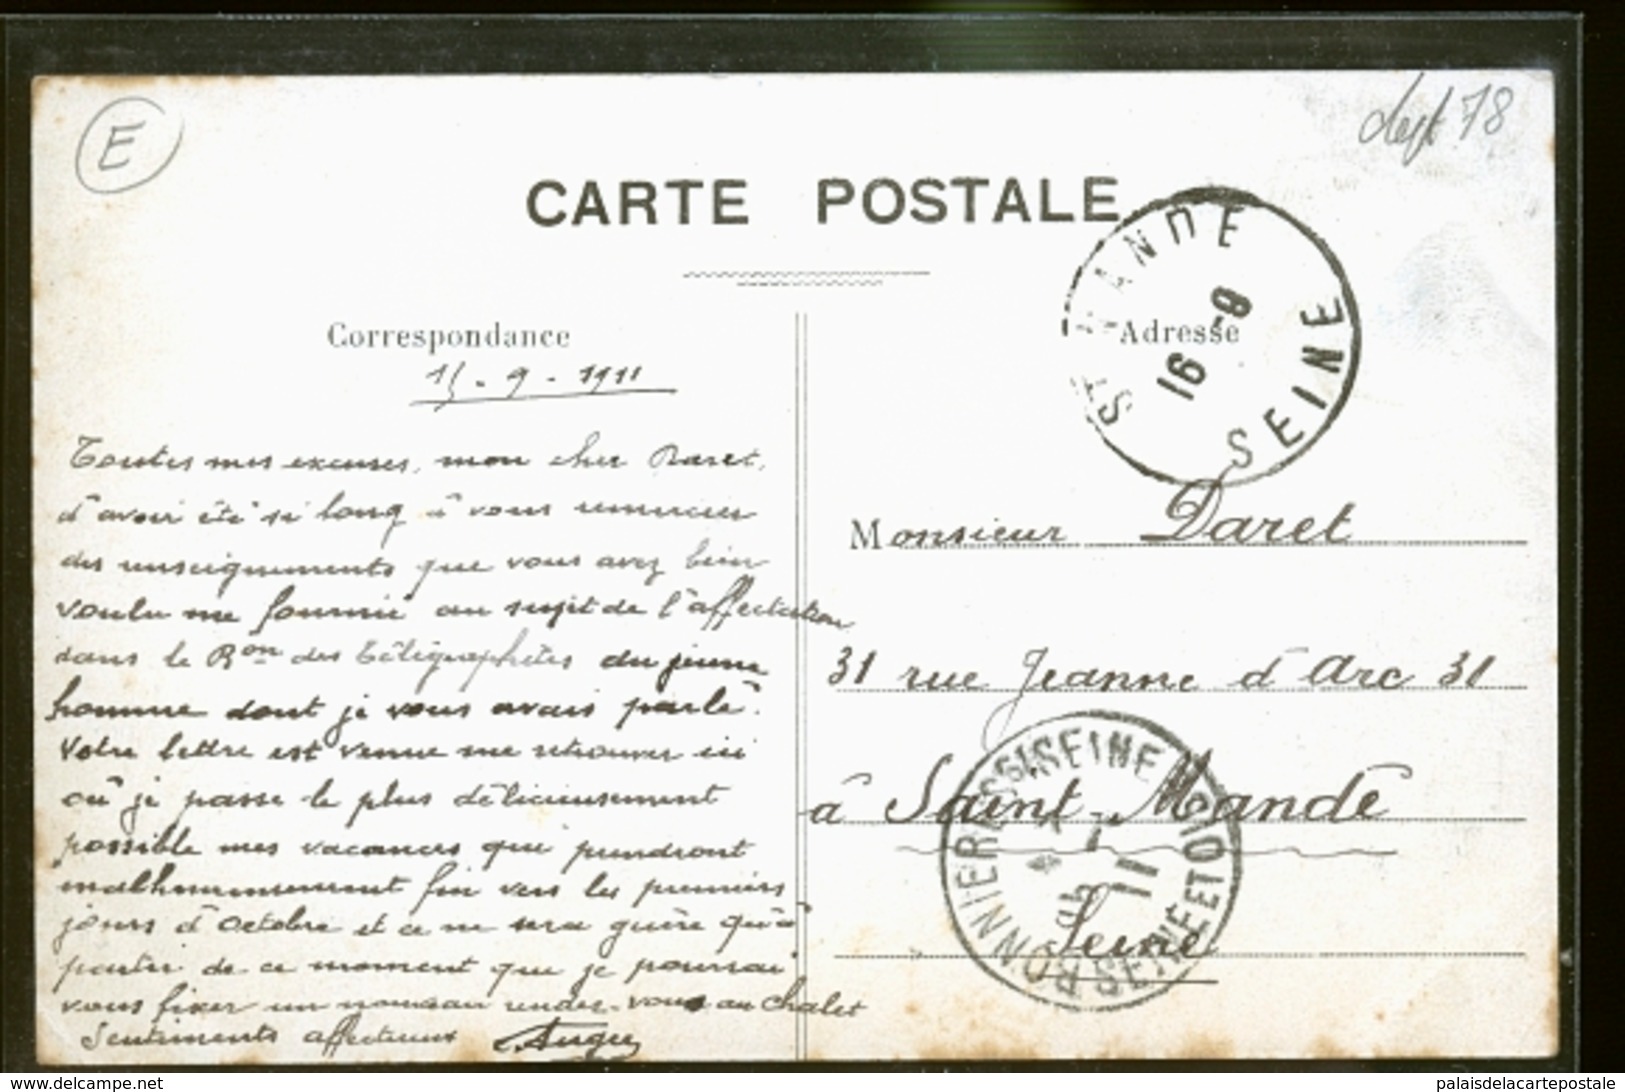 E
dept 78
CARTE POSTALE
ST MANDE
16 -9
SEINE
Correspondance
Adresse
15 - 9 - 1911
Toutes mes excuses, mon cher Daret,
d'avoir été si long à vous remercier
des renseignements que vous avez bien
voulu me fournir au sujet de l'affectation
dans le Bon des Télégraphistes du jeune
homme dont je vous avais parlé.
Votre lettre est venue me retrouver ici
où je passe le plus délicieusement
possible mes vacances qui prendront
malheureusement fin vers les premiers
jours d'Octobre et ce ne sera guère qu'à
partir de ce moment que je pourrai
vous fixer un nouveau rendez-vous au Chalet
Sentiments affectueux
Monsieur Daret
31 rue Jeanne d'Arc 31
à Saint-Mandé
Seine
BONNIERES S/SEINE
11
SEINE ET OISE
www.delcampe.net
palaisdelacartepostale